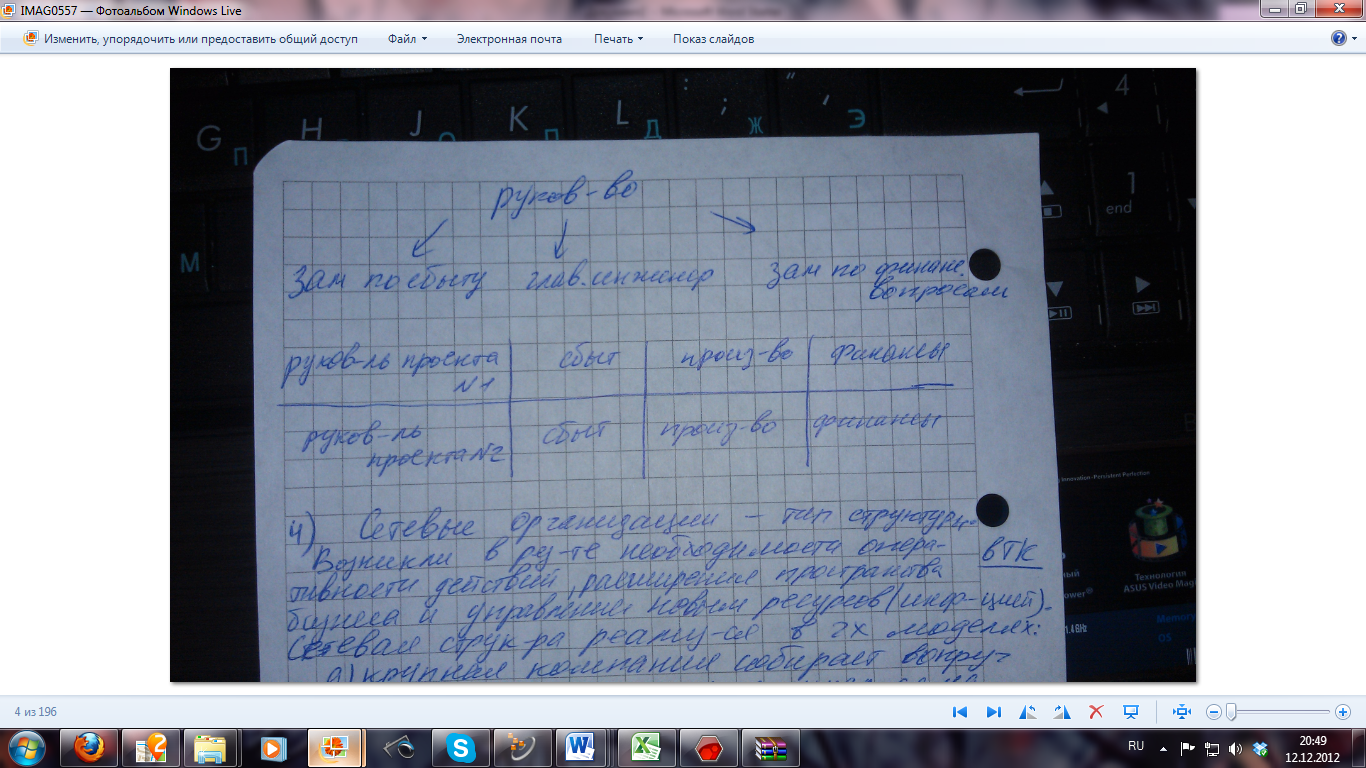 IMAG0557 — Фотоальбом Windows Live
Изменить, упорядочить или предоставить общий доступ Файл Электронная почта Печать Показ слайдов
G H J K L : ; " ' 4
П О Л Д Ж Э
1
end
М
руков-во
Зам по сбыту глав. инженер Зам по финанс.
вопросам
руков-ль проекта сбыт произ-во Финансы
№1
руков-ль сбыт произ-во финансы
проекта №2
4) Сетевые организации – тип структуры.
Возникли в ру-те необходимости опера- в ТК
тивности действий, расширения пространства
бизнеса и управления новым ресурсов (инф-цией).
Сетевая струк-ра реализу-ся в 2х моделях:
а) крупная компания собирает вокруг
Innovation • Persistent Perfection
Технология
ASUS Video Magic
Memory
OS
1.4 GHz
4 из 196
RU 20:49
12.12.2012